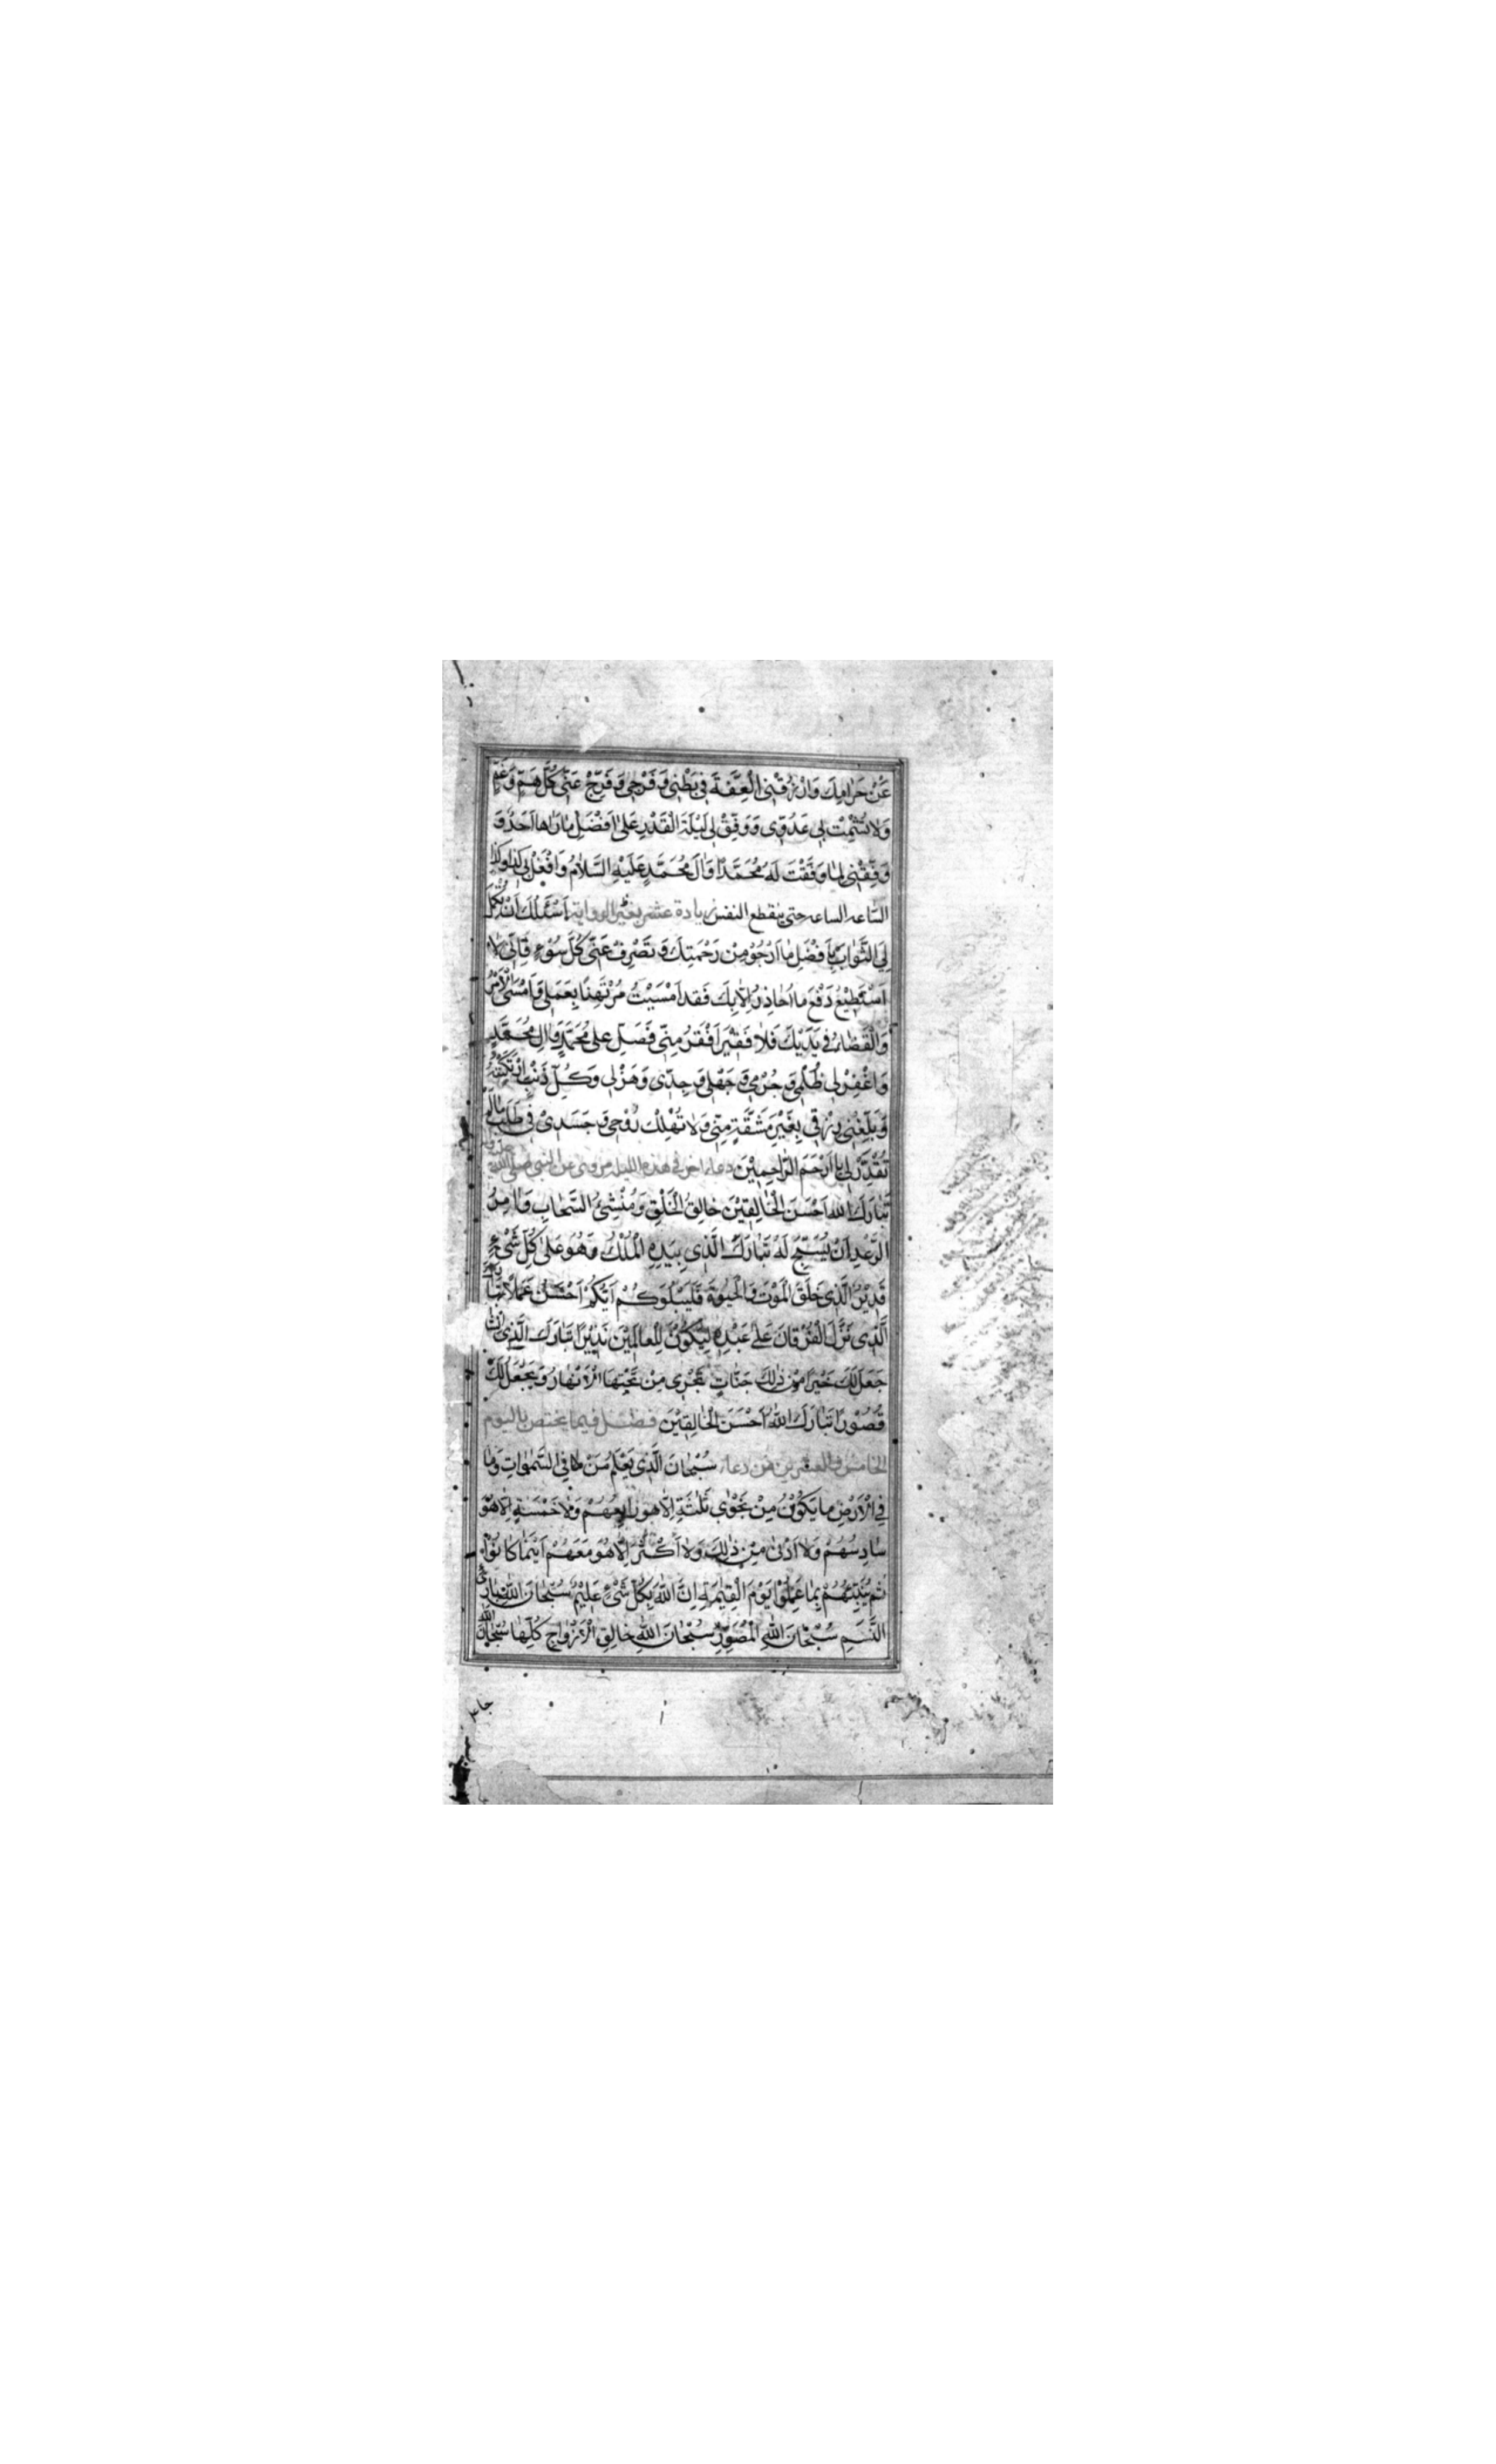 عَنْ حَرَامِكَ وَارْزُقْنِي الْعِفَّةَ فِي بَطْنِي وَفَرْجِي وَفَرِّجْ عَنِّي كُلَّ هَمٍّ وَغَمٍّ
وَلَا تُشْمِتْ بِي عَدُوِّي وَوَفِّقْ لِي لَيْلَةَ الْقَدْرِ عَلَىٰ أَفْضَلِ مَا رَاٰهَا أَحَدٌ وَ
وَفِّقْنِي لِمَا وَفَّقْتَ لَهُ مُحَمَّدًا وَاٰلَ مُحَمَّدٍ عَلَيْهِ السَّلَامُ وَافْعَلْ بِي كَذَا وَكَذَا
السّاعه الساعه حتى ينقطع النفس زيادة عشر بغير الرواية أَسْئَلُكَ أَنْ تُكْمِلَ
لِيَ الثَّوَابَ بِأَفْضَلِ مَا أَرْجُو مِنْ رَحْمَتِكَ وَتَصْرِفَ عَنِّي كُلَّ سُوْءٍ فَإِنِّي لَا
أَسْتَطِيعُ دَفْعَ مَا أُحَاذِرُ إِلَّا بِكَ فَقَد أَمْسَيْتُ مُرْتَهَنًا بِعَمَلِي وَأَمْسَى الْأَمْرُ
وَالْقَضَاءُ فِي يَدَيْكَ فَلَا فَقِيْرَ أَفْقَرُ مِنِّي فَصَلِّ عَلَى مُحَمَّدٍ وَاٰلِ مُحَمَّدٍ
وَاغْفِرْ لِي ظُلْمِي وَجُرْمِي وَجَهْلِي وَجِدِّي وَهَزْلِي وَكُلَّ ذَنْبٍ ارْتَكَبْتُهُ
وَبَلِّغْنِي رِزْقِي بِغَيْرِ مَشَقَّةٍ مِنِّي وَلَا تُهْلِكْ رُوْحِي وَجَسَدِيْ فِي طَلَبِ مَا لَمْ
تُقَدِّرْ لِي يَا أَرْحَمَ الرَّاحِمِيْنَ دعاء اخر في هذه الليلة مروى عن النبي صلى الله عليه واله
تَبَارَكَ اللّٰهُ أَحْسَنَ الْخَالِقِيْنَ خَالِقُ الْخَلْقِ وَمُنْشِئُ السَّحَابِ وَاٰمِرُ
الرَّعْدِ أَنْ يُسَبِّحَ لَهُ تَبَارَكَ الَّذِي بِيَدِهِ الْمُلْكُ وَهُوَ عَلَىٰ كُلِّ شَيْءٍ
قَدِيْرٌ الَّذِي خَلَقَ الْمَوْتَ وَالْحَيٰوةَ فَلِيَبْلُوَكُمْ أَيُّكُمْ أَحْسَنُ عَمَلًا تَبَارَكَ
الَّذِي نَزَّلَ الْفُرْقَانَ عَلَىٰ عَبْدِهِ لِيَكُوْنَ لِلْعَالَمِيْنَ نَذِيْرًا تَبَارَكَ الَّذِي إِنْ شَاءَ
جَعَلَ لَكَ خَيْرًا مِنْ ذٰلِكَ جَنَّاتٍ تَجْرِي مِنْ تَحْتِهَا الْأَنْهَارُ وَيَجْعَلْ لَكَ
قُصُوْرًا تَبَارَكَ اللّٰهُ أَحْسَنَ الْخَالِقِيْنَ فصل فيما يختص باليوم
الخامس والعشرين من دعاء سُبْحَانَ الَّذِي يَعْلَمُ مَا فِي السَّمٰوَاتِ وَمَا
فِي الْأَرْضِ مَا يَكُوْنُ مِنْ نَجْوٰى ثَلٰثَةٍ إِلَّا هُوَ رَابِعُهُمْ وَلَا خَمْسَةٍ إِلَّا هُوَ
سَادِسُهُمْ وَلَا أَدْنٰى مِنْ ذٰلِكَ وَلَا أَكْثَرَ إِلَّا هُوَ مَعَهُمْ أَيْنَمَا كَانُوا
ثُمَّ يُنَبِّئُهُمْ بِمَا عَمِلُوا يَوْمَ الْقِيٰمَةِ إِنَّ اللّٰهَ بِكُلِّ شَيْءٍ عَلِيْمٌ سُبْحَانَ اللّٰهِ بَارِئِ
النَّسَمِ سُبْحَانَ اللّٰهِ الْمُصَوِّرِ سُبْحَانَ اللّٰهِ خَالِقِ الْأَزْوَاجِ كُلِّهَا سُبْحَانَ اللّٰهِ